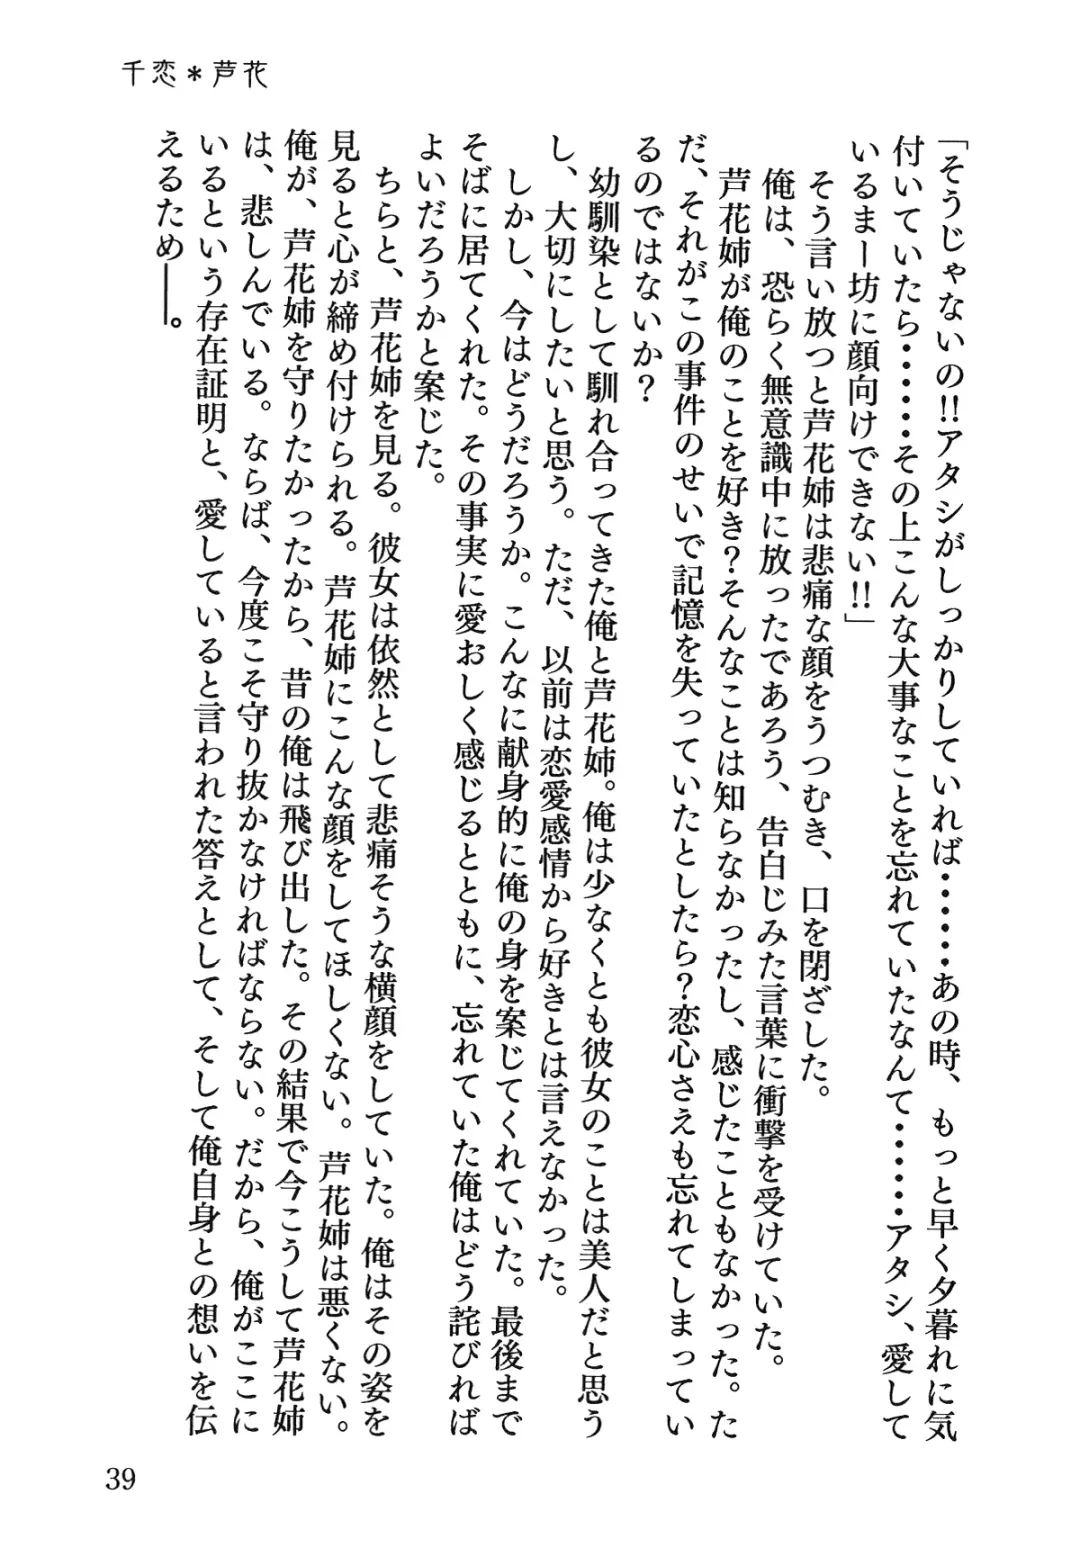 千恋＊芦花
「そうじゃないの!!アタシがしっかりしていれば・・・・・あの時、もっと早く夕暮れに気
付いていたら・・・・・その上こんな大事なことを忘れていたなんて・・・・・アタシ、愛して
いるまー坊に顔向けできない!!」
そう言い放つと芦花姉は悲痛な顔をうつむき、口を閉ざした。
俺は、恐らく無意識中に放ったであろう、告白じみた言葉に衝撃を受けていた。
芦花姉が俺のことを好き？そんなことは知らなかったし、感じたこともなかった。た
だ、それがこの事件のせいで記憶を失っていたとしたら？恋心さえも忘れてしまってい
るのではないか？
幼馴染として馴れ合ってきた俺と芦花姉。俺は少なくとも彼女のことは美人だと思う
し、大切にしたいと思う。ただ、以前は恋愛感情から好きとは言えなかった。
しかし、今はどうだろうか。こんなに献身的に俺の身を案じてくれていた。最後まで
そばに居てくれた。その事実に愛おしく感じるとともに、忘れていた俺はどう詫びれば
よいだろうかと案じた。
ちらと、芦花姉を見る。彼女は依然として悲痛そうな横顔をしていた。俺はその姿を
見ると心が締め付けられる。芦花姉にこんな顔をしてほしくない。芦花姉は悪くない。
俺が、芦花姉を守りたかったから、昔の俺は飛び出した。その結果で今こうして芦花姉
は、悲しんでいる。ならば、今度こそ守り抜かなければならない。だから、俺がここに
いるという存在証明と、愛していると言われた答えとして、そして俺自身との想いを伝
えるため――。
39